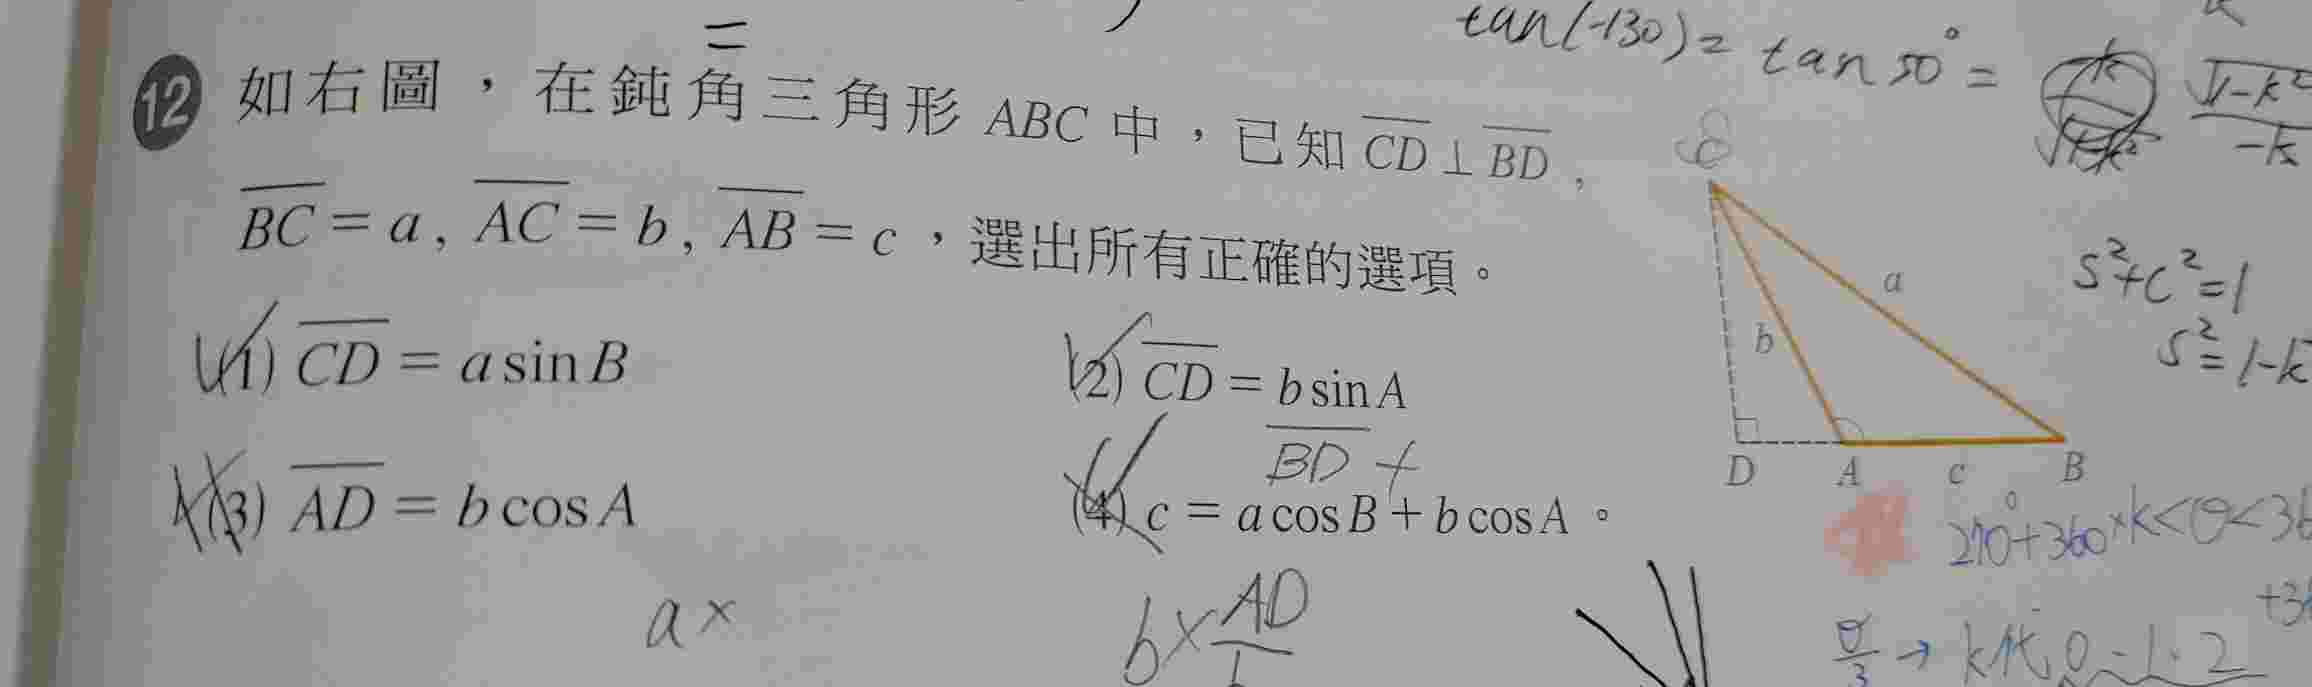 tan(-130)= tan 50° = √1-k² / -k
12 如右圖，在鈍角三角形 ABC 中，已知 CD⊥BD，
BC = a, AC = b, AB = c，選出所有正確的選項。
(1) CD = a sin B
(2) CD = b sin A
BD +
(3) AD = b cos A
(4) c = a cos B + b cos A。
a
b
D
A
c
B
s²+c²=1
s²=1-k
270°+360×k<θ<36
a×
b× AD
θ/3 → k代 0-1.2
+3